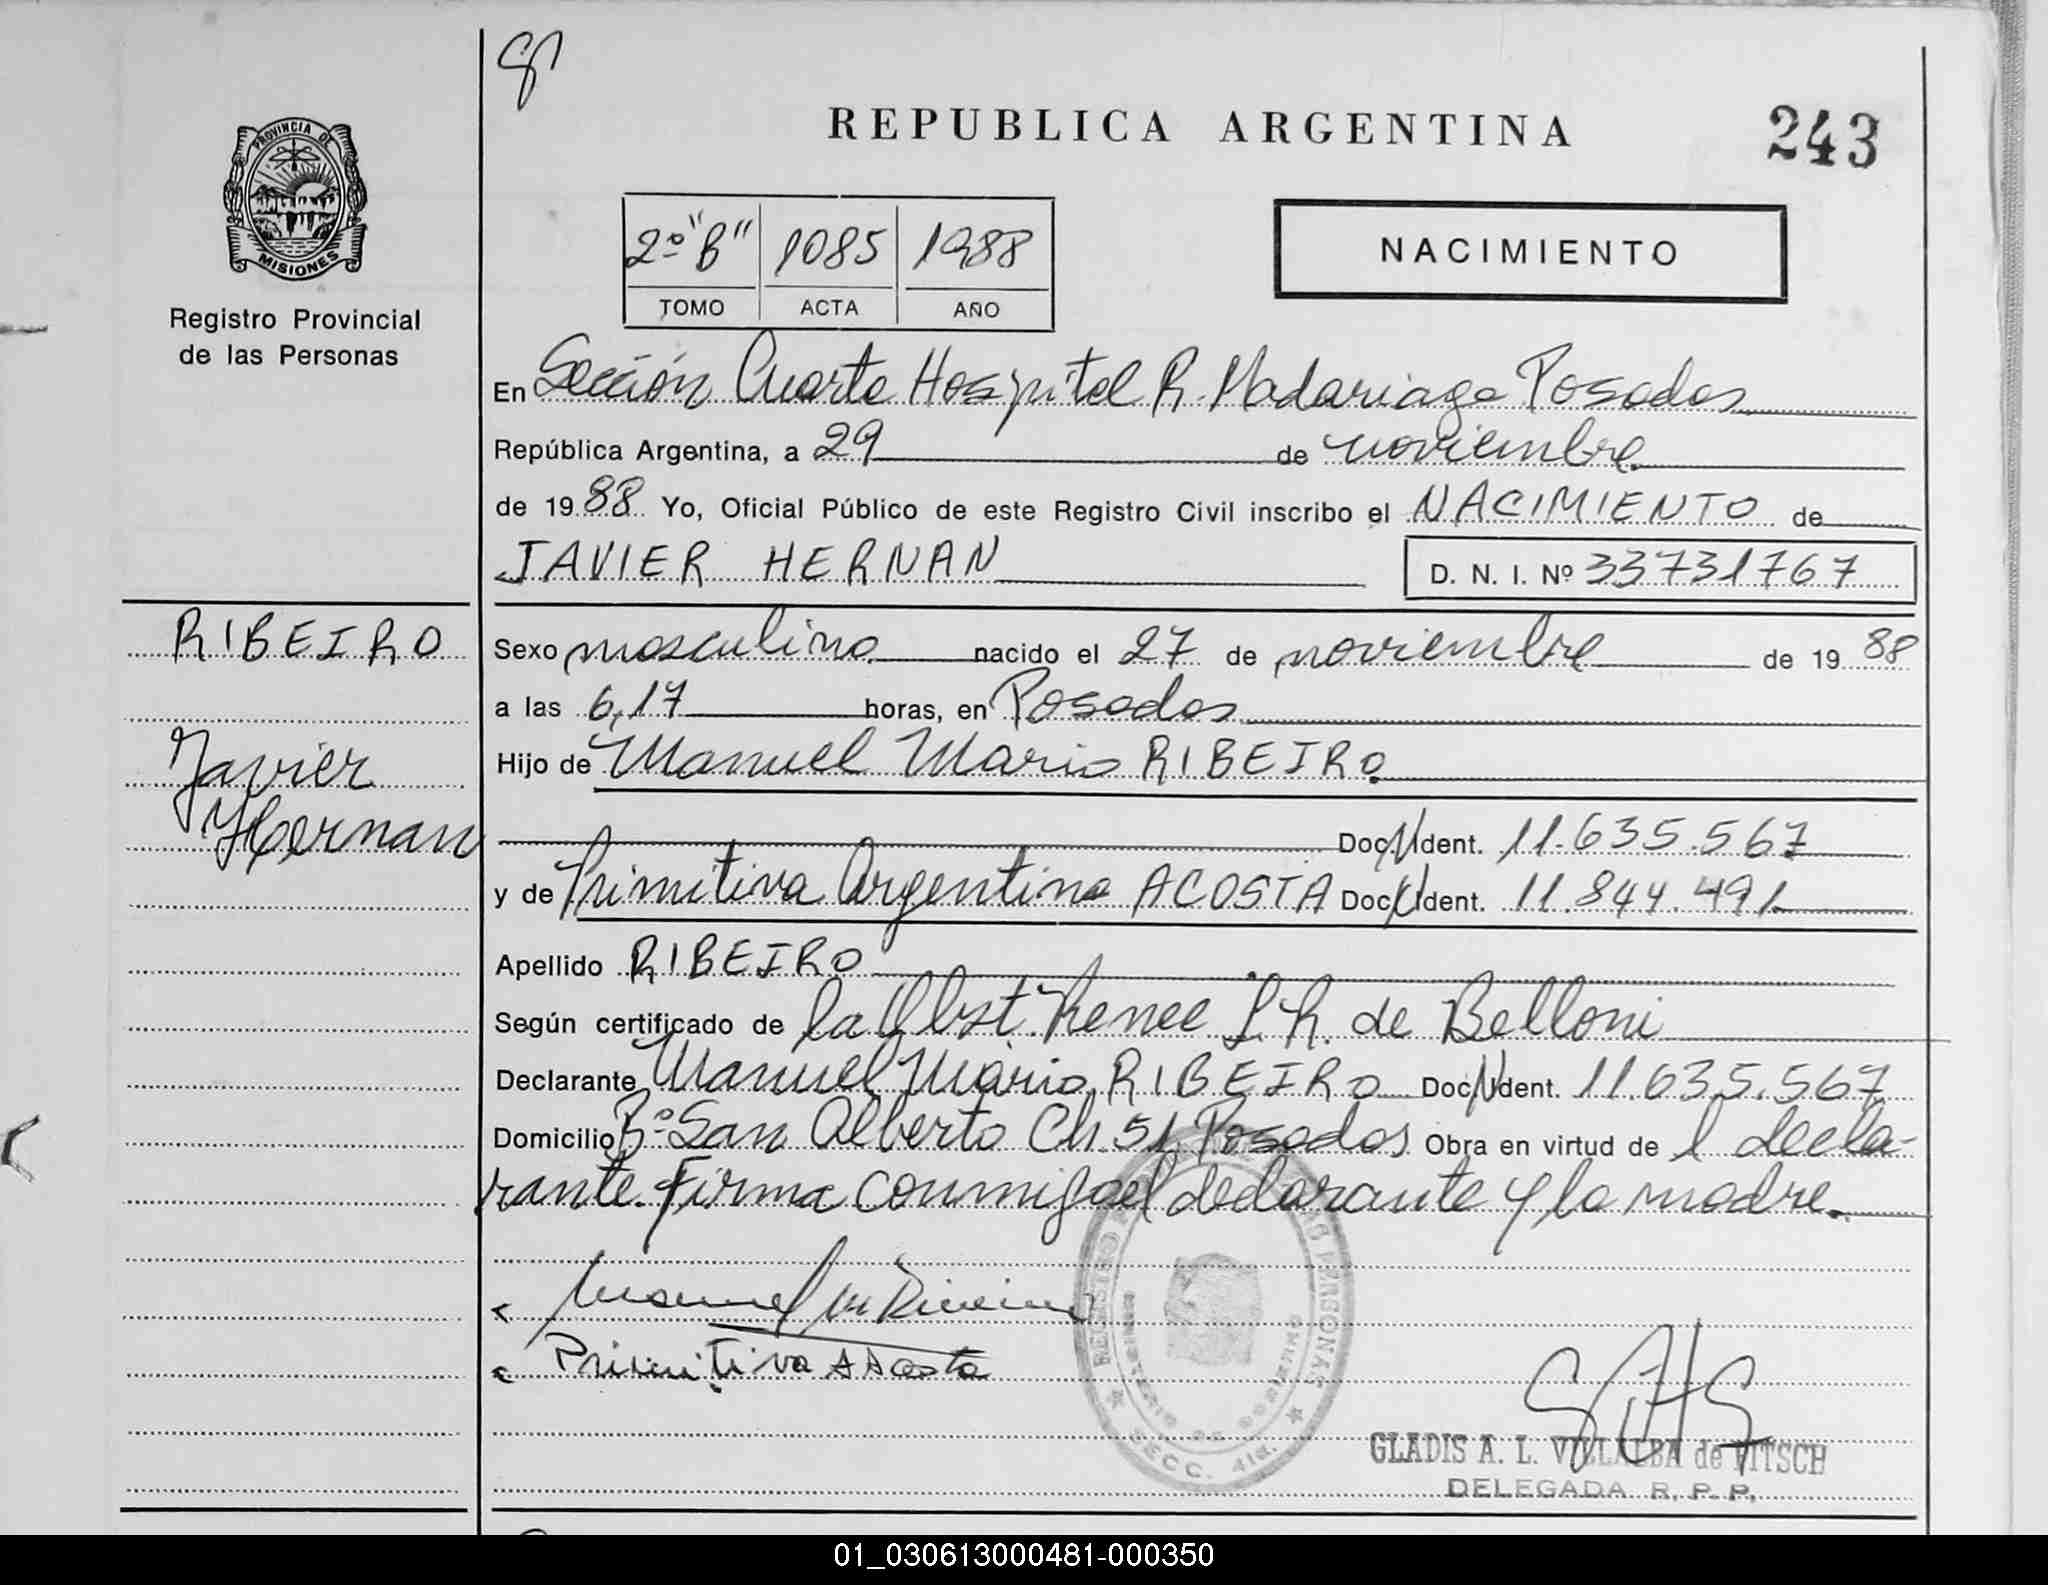 REPUBLICA ARGENTINA
243
PROVINCIA DE
MISIONES
Registro Provincial
de las Personas
2º "B" 1085 1988
TOMO ACTA AÑO
NACIMIENTO
En Sección Cuarta Hospital R. Madariaga Posadas
República Argentina, a 29 de noviembre
de 1988 Yo, Oficial Público de este Registro Civil inscribo el NACIMIENTO de
JAVIER HERNAN D. N. I. Nº 33731767
RIBEIRO
Javier
Hernan
Sexo masculino nacido el 27 de noviembre de 1988
a las 6,17 horas, en Posadas
Hijo de Manuel Mario RIBEIRO
Doc. N Ident. 11.635.567
y de Primitiva Argentina ACOSTA Doc. N Ident. 11.844.491
Apellido RIBEIRO
Según certificado de la Obst. Renee L. R. de Belloni
Declarante Manuel Mario RIBEIRO Doc. N Ident. 11.635.567
Domicilio Bº San Alberto Ch 51 Posadas Obra en virtud de l decla-
rante. Firma conmigo el declarante y la madre.
Primitiva A Acosta
REGISTRO DE LAS PERSONAS
MINISTERIO DE GOBIERNO
SECC. 4ta.
GLADIS A. L. VILLALBA de PITSCH
DELEGADA R. P. P.
01_030613000481-000350